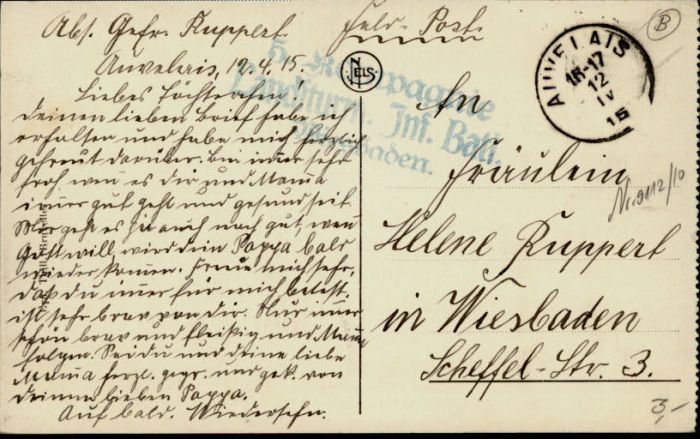 Abs. Gefr. Ruppert.
Feld-Post.
Auvelais, 12.4.15.
Liebes Töchterchen!
deinen lieben Brief habe ich
erhalten und habe mich herzlich
gefreut darüber. Bin immer sehr
froh wenn es dir und Mama
immer gut geht und gesund seit.
Mir geht es hir auch noch gut, wenn
Gott will, wird dein Pappa bald
wieder kommen. Freue mich sehr,
das du immer für mich betest,
ist sehr brav von dir. Nur immer
schön brav und fleißig und Mama
folgen. Sei du und deine liebe
Mama herzl. gegr. und gek. von
deinem lieben Pappa.
Auf bald. Wiedersehn.
NELS
5. Kompagnie
Landsturm. Inf. Batl.
Wiesbaden.
AUVELAIS
16-17
12
IV
15
B
An
Fräulein
Helene Ruppert
in Wiesbaden
Scheffel-Str. 3.
Nr. 9112/10
3,-